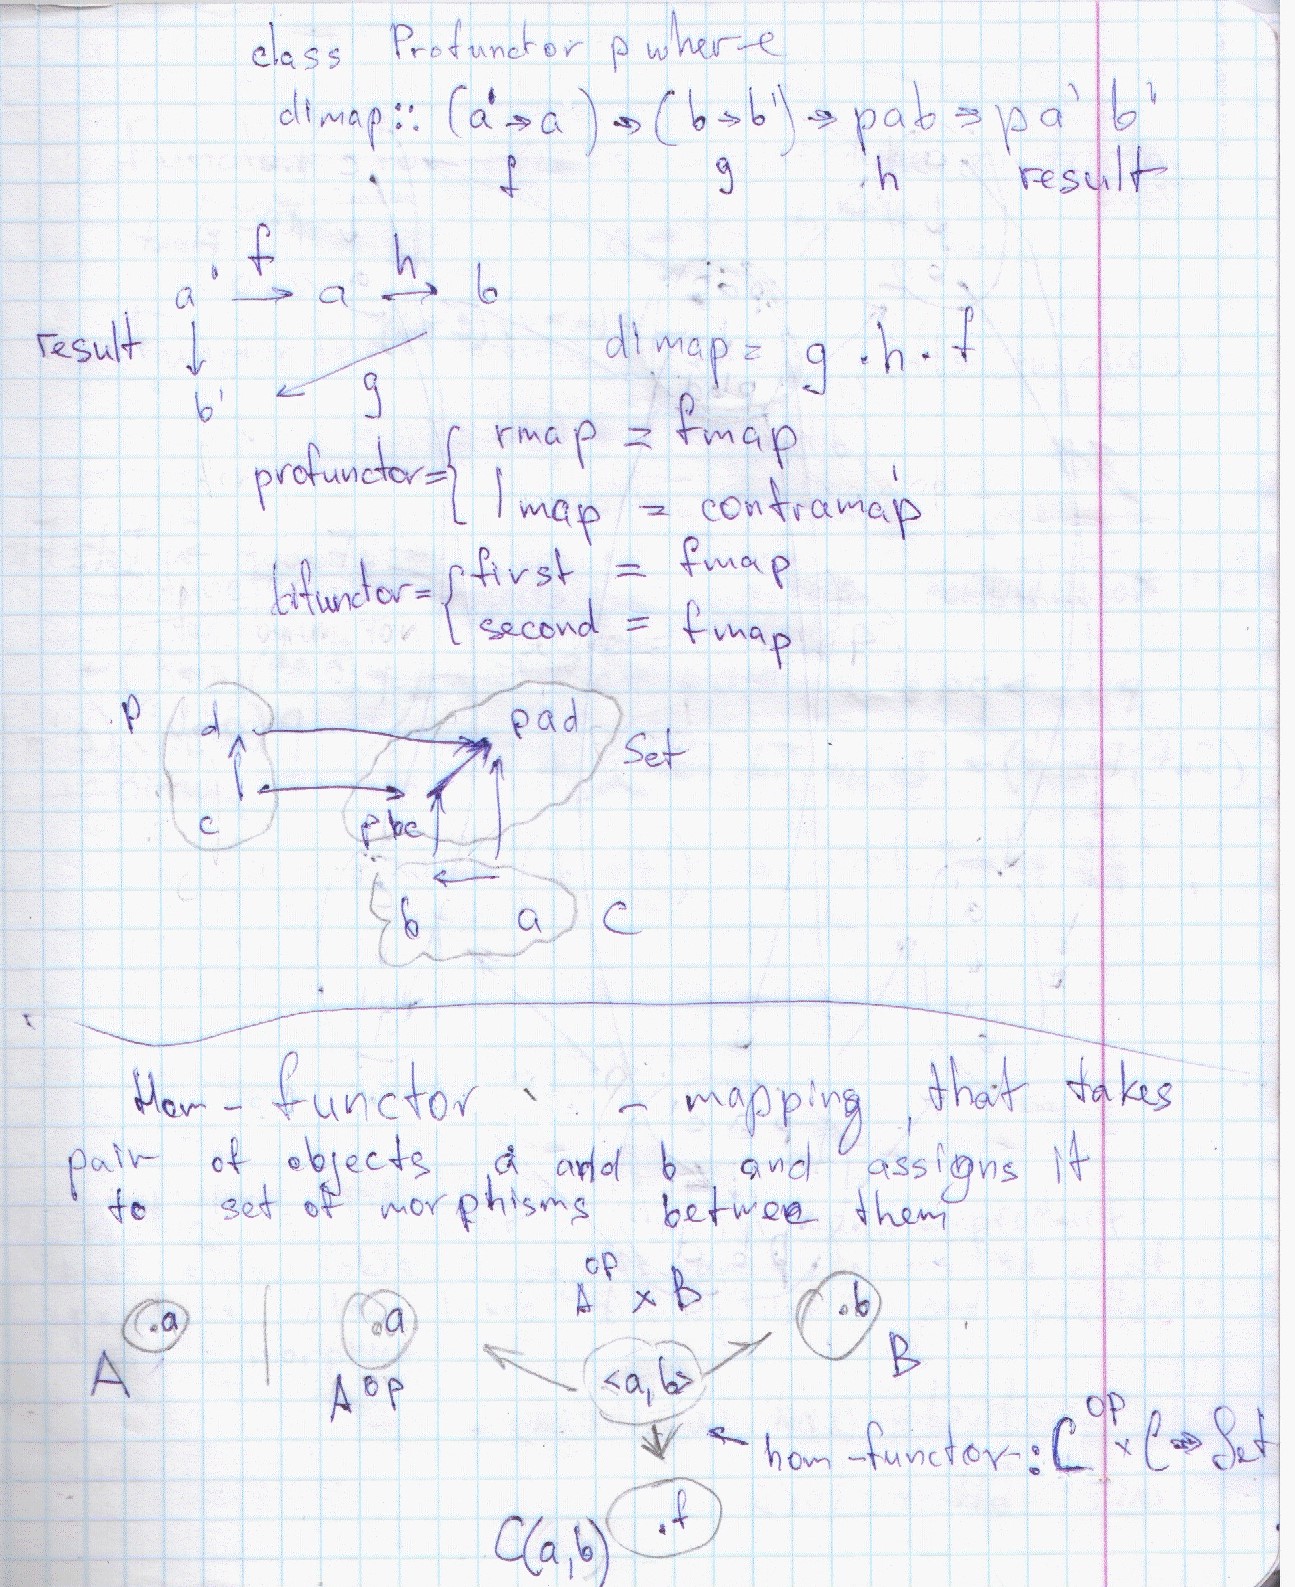 class Profunctor p where
dimap :: (a' → a) → (b → b') → pab → pa' b'
f g h result
a' f → a h → b
result ↓
b' g
dimap = g . h . f
profunctor = { rmap = fmap
lmap = contramap
bifunctor = { first = fmap
second = fmap
p d pad
Set
c pbc
b a C
Hom-functor - mapping, that takes
pair of objects a and b and assigns it
to set of morphisms between them
A^op x B
.a .a .b
A A^op <a,b> B
hom-functor: C^op x C → Set
.f
C(a,b)